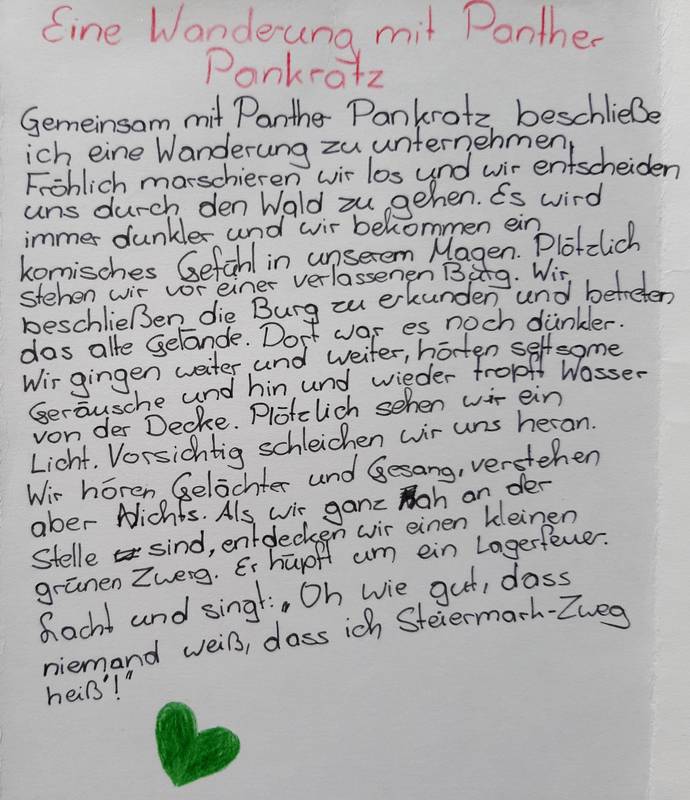 Eine Wanderung mit Panther
Pankratz
Gemeinsam mit Panther Pankratz beschließe
ich eine Wanderung zu unternehmen.
Fröhlich marschieren wir los und wir entscheiden
uns durch den Wald zu gehen. Es wird
immer dunkler und wir bekommen ein
komisches Gefühl in unserem Magen. Plötzlich
stehen wir vor einer verlassenen Burg. Wir
beschließen die Burg zu erkunden und betreten
das alte Gelände. Dort war es noch dünkler.
Wir gingen weiter und weiter, hörten seltsame
Geräusche und hin und wieder tropft Wasser
von der Decke. Plötzlich sehen wir ein
Licht. Vorsichtig schleichen wir uns heran.
Wir hören Gelächter und Gesang, verstehen
aber Nichts. Als wir ganz Nah an der
Stelle sind, entdecken wir einen kleinen
grünen Zwerg. Er hüpft um ein Lagerfeuer.
Lacht und singt: „Oh wie gut, dass
niemand weiß, dass ich Steiermark-Zweg
heiß'!"